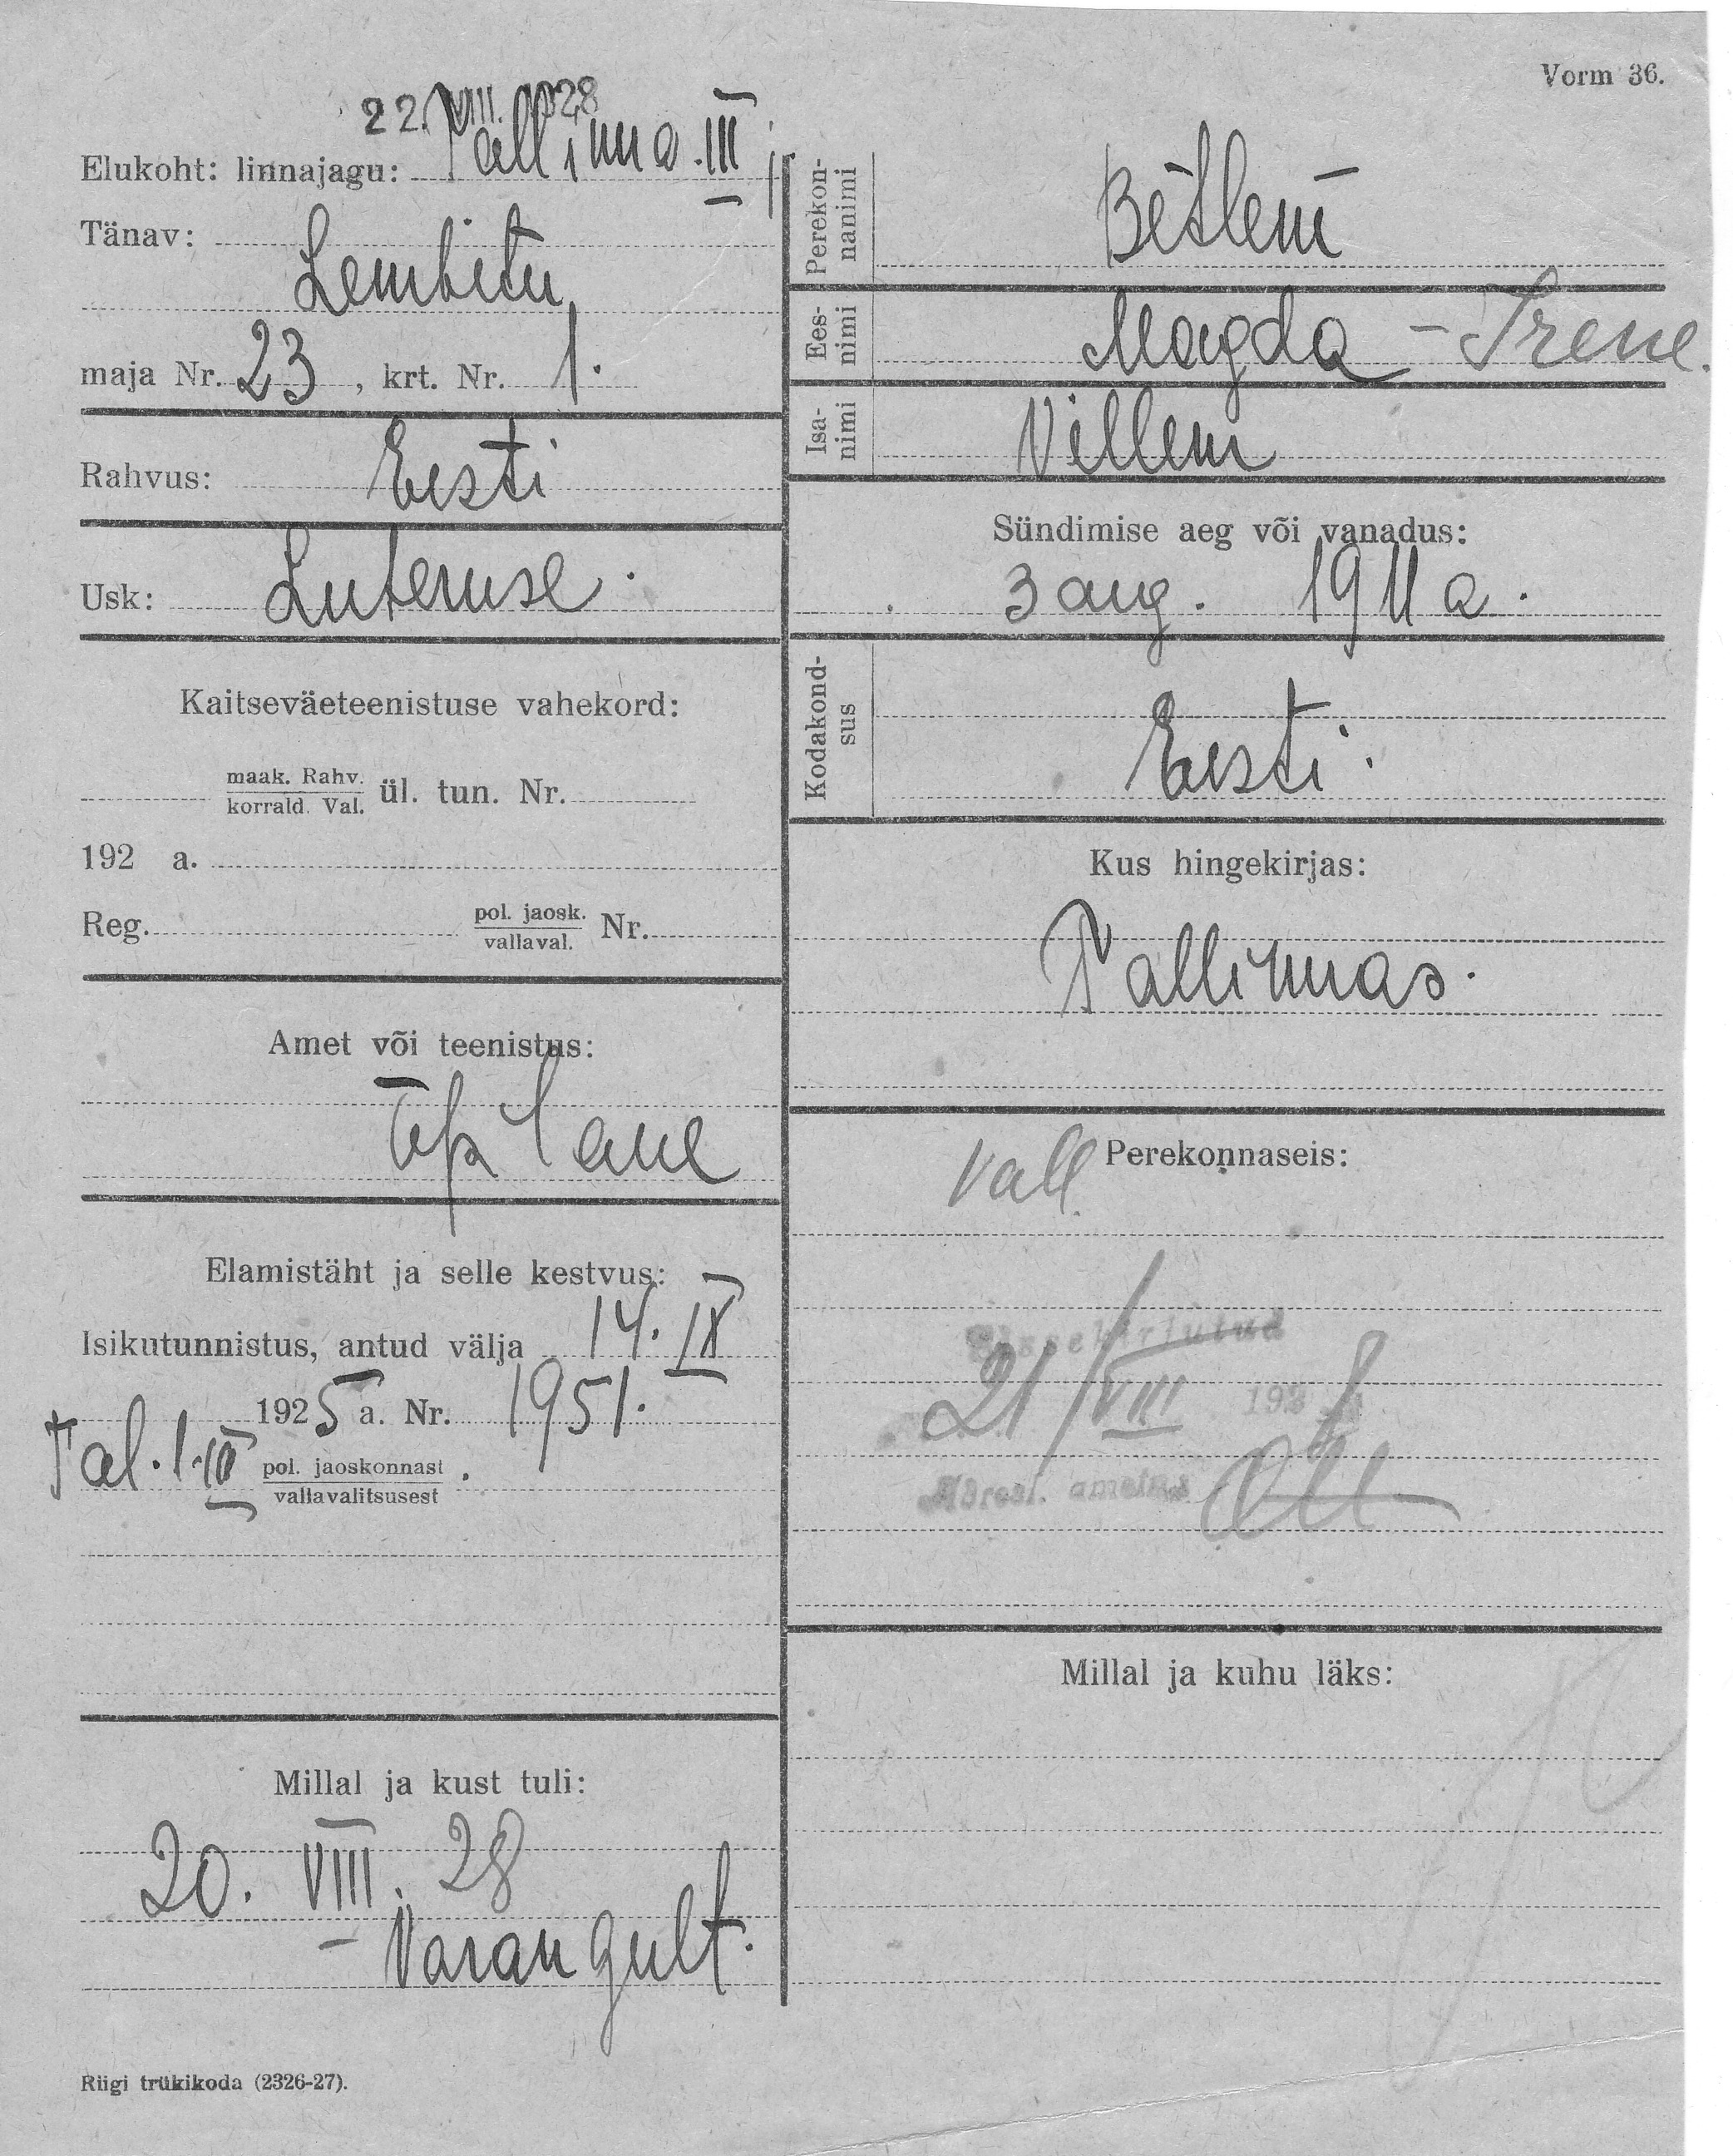 Vorm 36.
22. VIII. 1928
Elukoht: linnajagu: Tallinna III j.
Tänav:
Lembitu
maja Nr. 23, krt. Nr. 1.
Rahvus: Eesti
Usk: Luteruse.
Kaitseväeteenistuse vahekord:
maak. Rahv.
korrald. Val. ül. tun. Nr.
192 a.
Reg. pol. jaosk.
vallaval. Nr.
Amet või teenistus:
Õpilane
Elamistäht ja selle kestvus:
Isikutunnistus, antud välja 14. IX
1925 a. Nr. 1951.
Tal. l. III pol. jaoskonnast
vallavalitsusest
Millal ja kust tuli:
20. VIII. 28
– Varangult.
Riigi trükikoda (2326-27).
Perekon-
nanimi
Betlem
Ees-
nimi
Magda - Irene.
Isa-
nimi
Villem
Sündimise aeg või vanadus:
3 aug. 1911 a.
Kodakond-
sus
Eesti.
Kus hingekirjas:
Tallinnas.
Perekonnaseis:
Vall.
Sissekirjutud
21/VIII 1928
Adresl. ametnik
Millal ja kuhu läks: